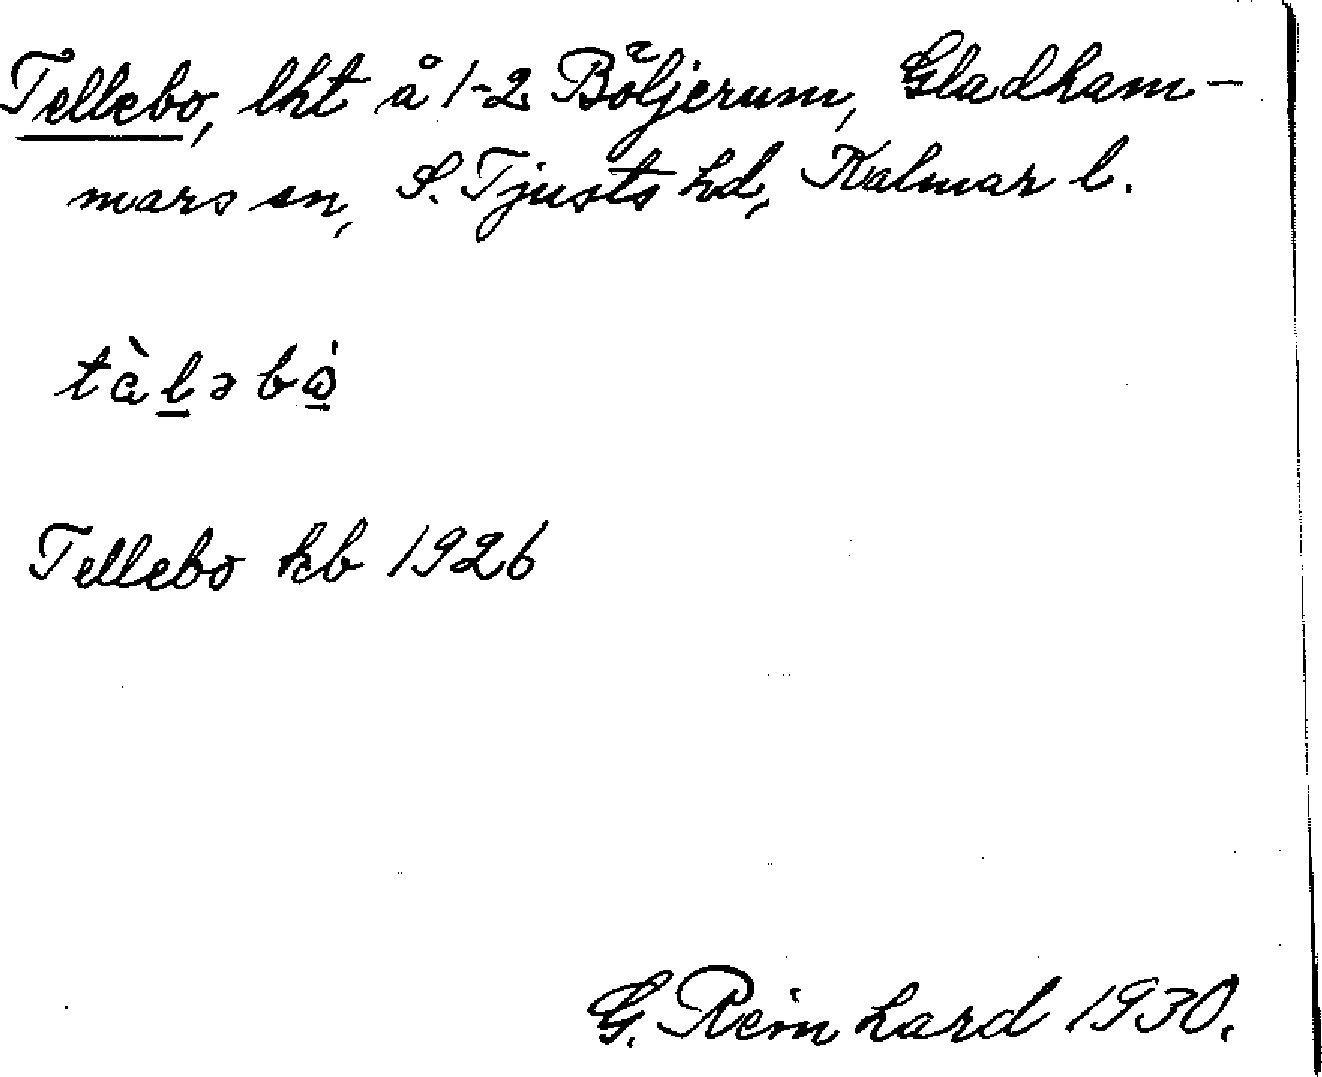 Tellebo, lht å 1-2 Böljerum, Gladham-
mars sn, S. Tjusts hd, Kalmar l.
tàl̲əbò̲
Tellebo kb 1926
G. Reinhard 1930.